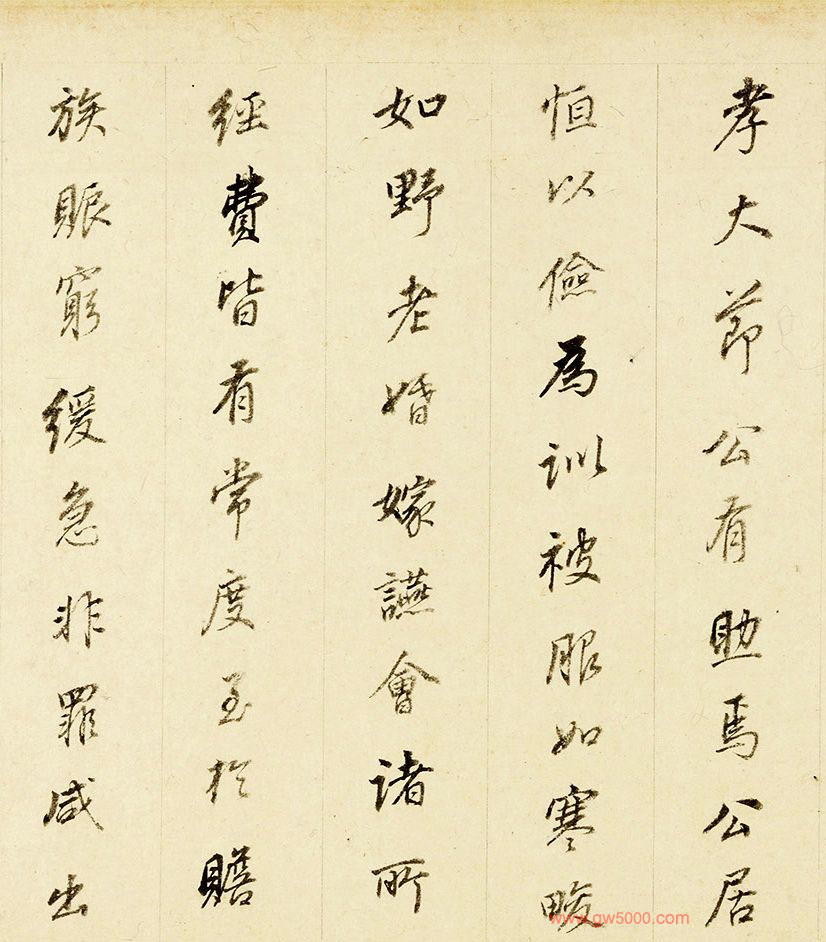 孝大節公有助焉公居
恒以儉為訓被服如寒畯
如野老婚嫁讌會諸所
經費皆有常度至於贍
族賑窮緩急非罪咸出
www.gw5000.com